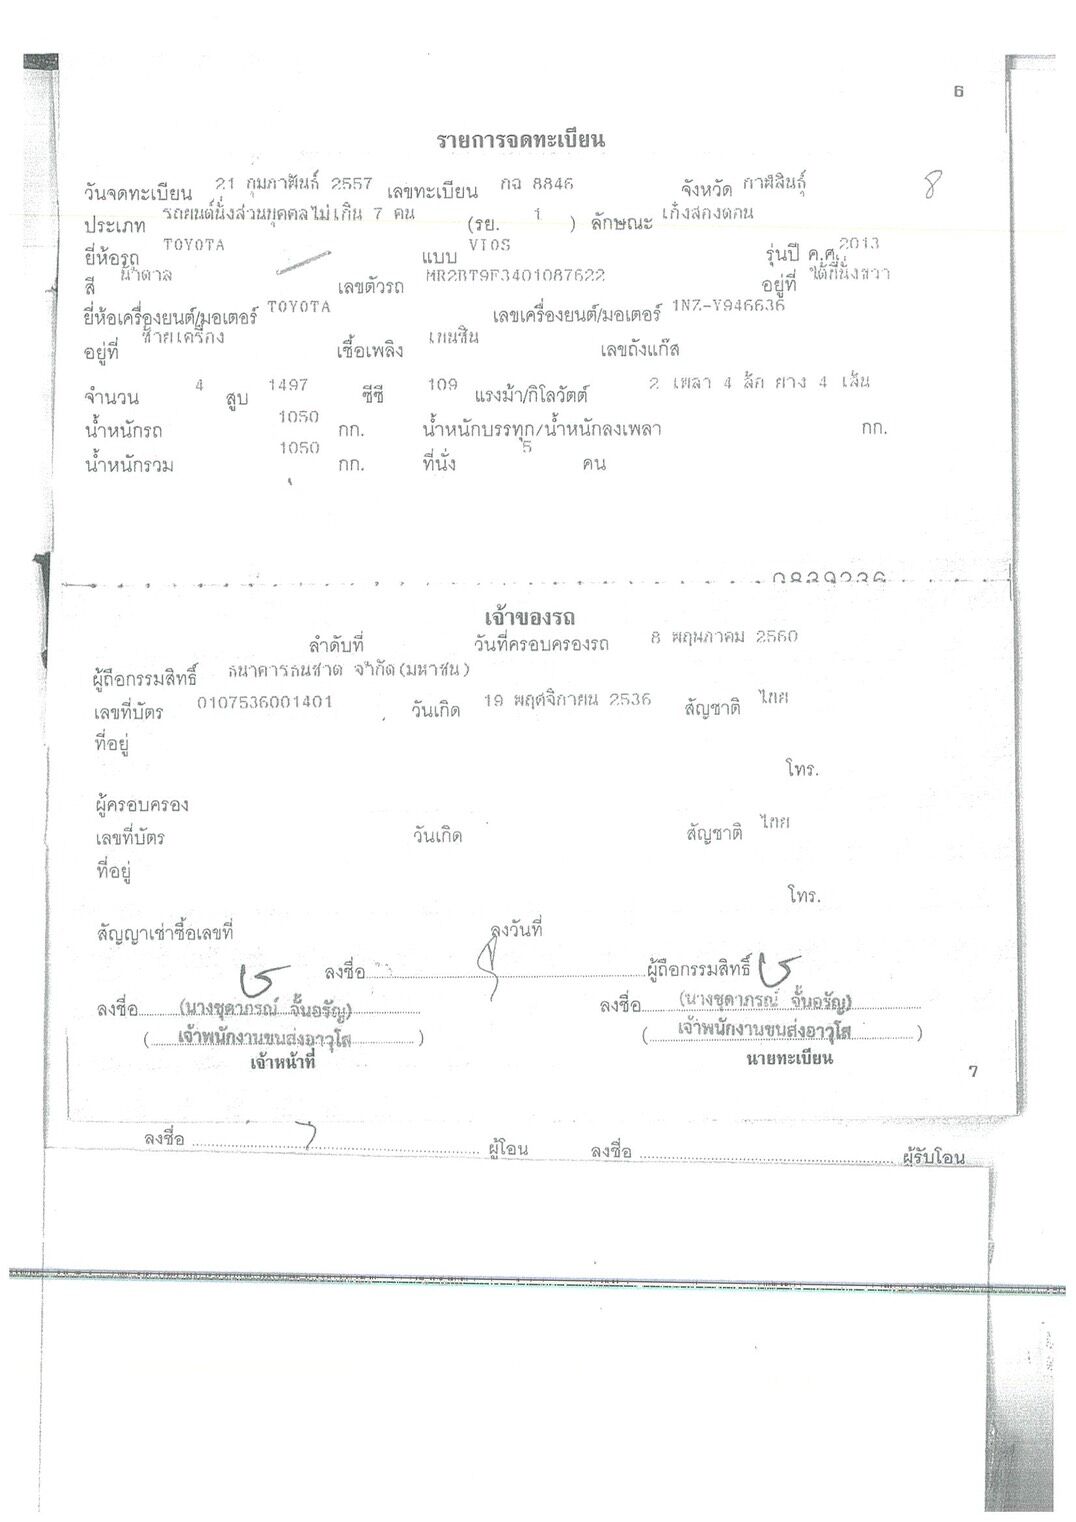 6
รายการจดทะเบียน
วันจดทะเบียน 21 กุมภาพันธ์ 2557 เลขทะเบียน กฉ 8846 จังหวัด กาฬสินธุ์ 8
ประเภท รถยนต์นั่งส่วนบุคคลไม่เกิน 7 คน (รย. 1 ) ลักษณะ เก๋งสองตอน
ยี่ห้อรถ TOYOTA แบบ VIOS รุ่นปี ค.ศ. 2013
สี น้ำตาล เลขตัวรถ MR2BT9F3401087622 อยู่ที่ ใต้ที่นั่งขวา
ยี่ห้อเครื่องยนต์/มอเตอร์ TOYOTA เลขเครื่องยนต์/มอเตอร์ 1NZ-Y946636
อยู่ที่ ซ้ายเครื่อง เชื้อเพลิง เบนซิน เลขถังแก๊ส
จำนวน 4 สูบ 1497 ซีซี 109 แรงม้า/กิโลวัตต์ 2 เพลา 4 ล้อ ยาง 4 เส้น
น้ำหนักรถ 1050 กก. น้ำหนักบรรทุก/น้ำหนักลงเพลา กก.
น้ำหนักรวม 1050 กก. ที่นั่ง 5 คน
เจ้าของรถ
ลำดับที่ วันที่ครอบครองรถ 8 พฤษภาคม 2560
ผู้ถือกรรมสิทธิ์ ธนาคารธนชาต จำกัด(มหาชน)
เลขที่บัตร 0107536001401 วันเกิด 19 พฤศจิกายน 2536 สัญชาติ ไทย
ที่อยู่
โทร.
ผู้ครอบครอง
เลขที่บัตร วันเกิด สัญชาติ ไทย
ที่อยู่
โทร.
สัญญาเช่าซื้อเลขที่ ลงวันที่
ลงชื่อ ผู้ถือกรรมสิทธิ์
ลงชื่อ (นางชุดาภรณ์ จั้นอรัญ) ลงชื่อ (นางชุดาภรณ์ จั้นอรัญ)
( เจ้าพนักงานขนส่งอาวุโส ) ( เจ้าพนักงานขนส่งอาวุโส )
เจ้าหน้าที่ นายทะเบียน
7
ลงชื่อ ผู้โอน ลงชื่อ ผู้รับโอน